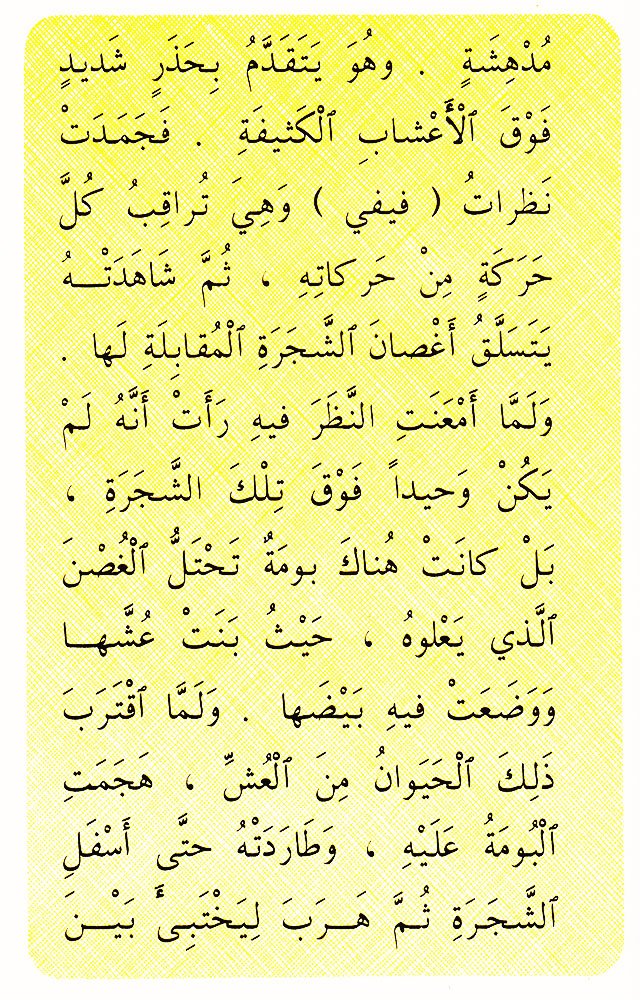 مُدْهِشَةٍ . وهُوَ يَتَقَدَّمُ بِحَذَرٍ شَديدٍ
فَوْقَ ٱلْأَعْشابِ ٱلْكَثيفَةِ . فَجَمَدَتْ
نَظراتُ ( فيفي ) وَهِيَ تُراقِبُ كُلَّ
حَرَكَةٍ مِنْ حَركاتِهِ ، ثُمَّ شَاهَدَتْــهُ
يَتَسَلَّقُ أَغْصانَ ٱلشَّجَرَةِ ٱلْمُقابِلَةِ لَها .
وَلَمَّا أَمْعَنَتِ النَّظَرَ فيهِ رَأَتْ أَنَّهُ لَمْ
يَكُنْ وَحيداً فَوْقَ تِلْكَ الشَّجَرَةِ ،
بَلْ كانَتْ هُناكَ بومَةٌ تَحْتَلُّ ٱلْغُصْنَ
ٱلَّذي يَعْلوهُ ، حَيْثُ بَنَتْ عُشَّهــا
وَوَضَعَتْ فيهِ بَيْضَها . وَلَمَّا ٱقْتَرَبَ
ذَلِكَ ٱلْحَيَوانُ مِنَ ٱلْعُشِّ ، هَجَمَتِ
ٱلْبُومَةُ عَلَيْهِ ، وَطَارَدَتْهُ حتَّى أَسْفَلِ
ٱلشَّجَرَةِ ثُـمَّ هَــرَبَ لِيَخْتَبِىأَ بَيْــنَ